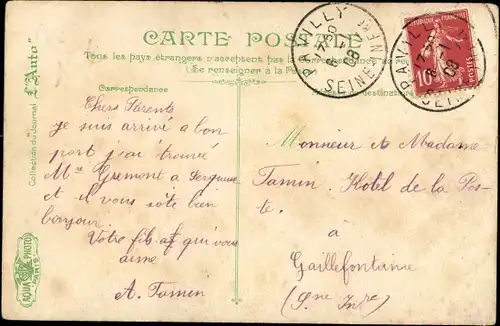 CARTE POSTALE
Tous les pays étrangers n'acceptent pas la correspondance
(Se renseigner à la
Correspondance
destinataire
Collection du Journal "L'Auto"
AQUA PHOTO
PARIS
PAVILLY
SEINE INFRE
17 30
08
PAVILLY
SEINE
08
POSTES
10
Chers Parents
je suis arrivé a bon
port j'ai trouvé
Mr Gremont a
et il vous
bien
bonjour.
Votre fils qui vous
aime
A. Tamin
Monsieur et Madame
Tamin. Hôtel de la Pos-
te.
à
Gaillefontaine
(Sne Inre)